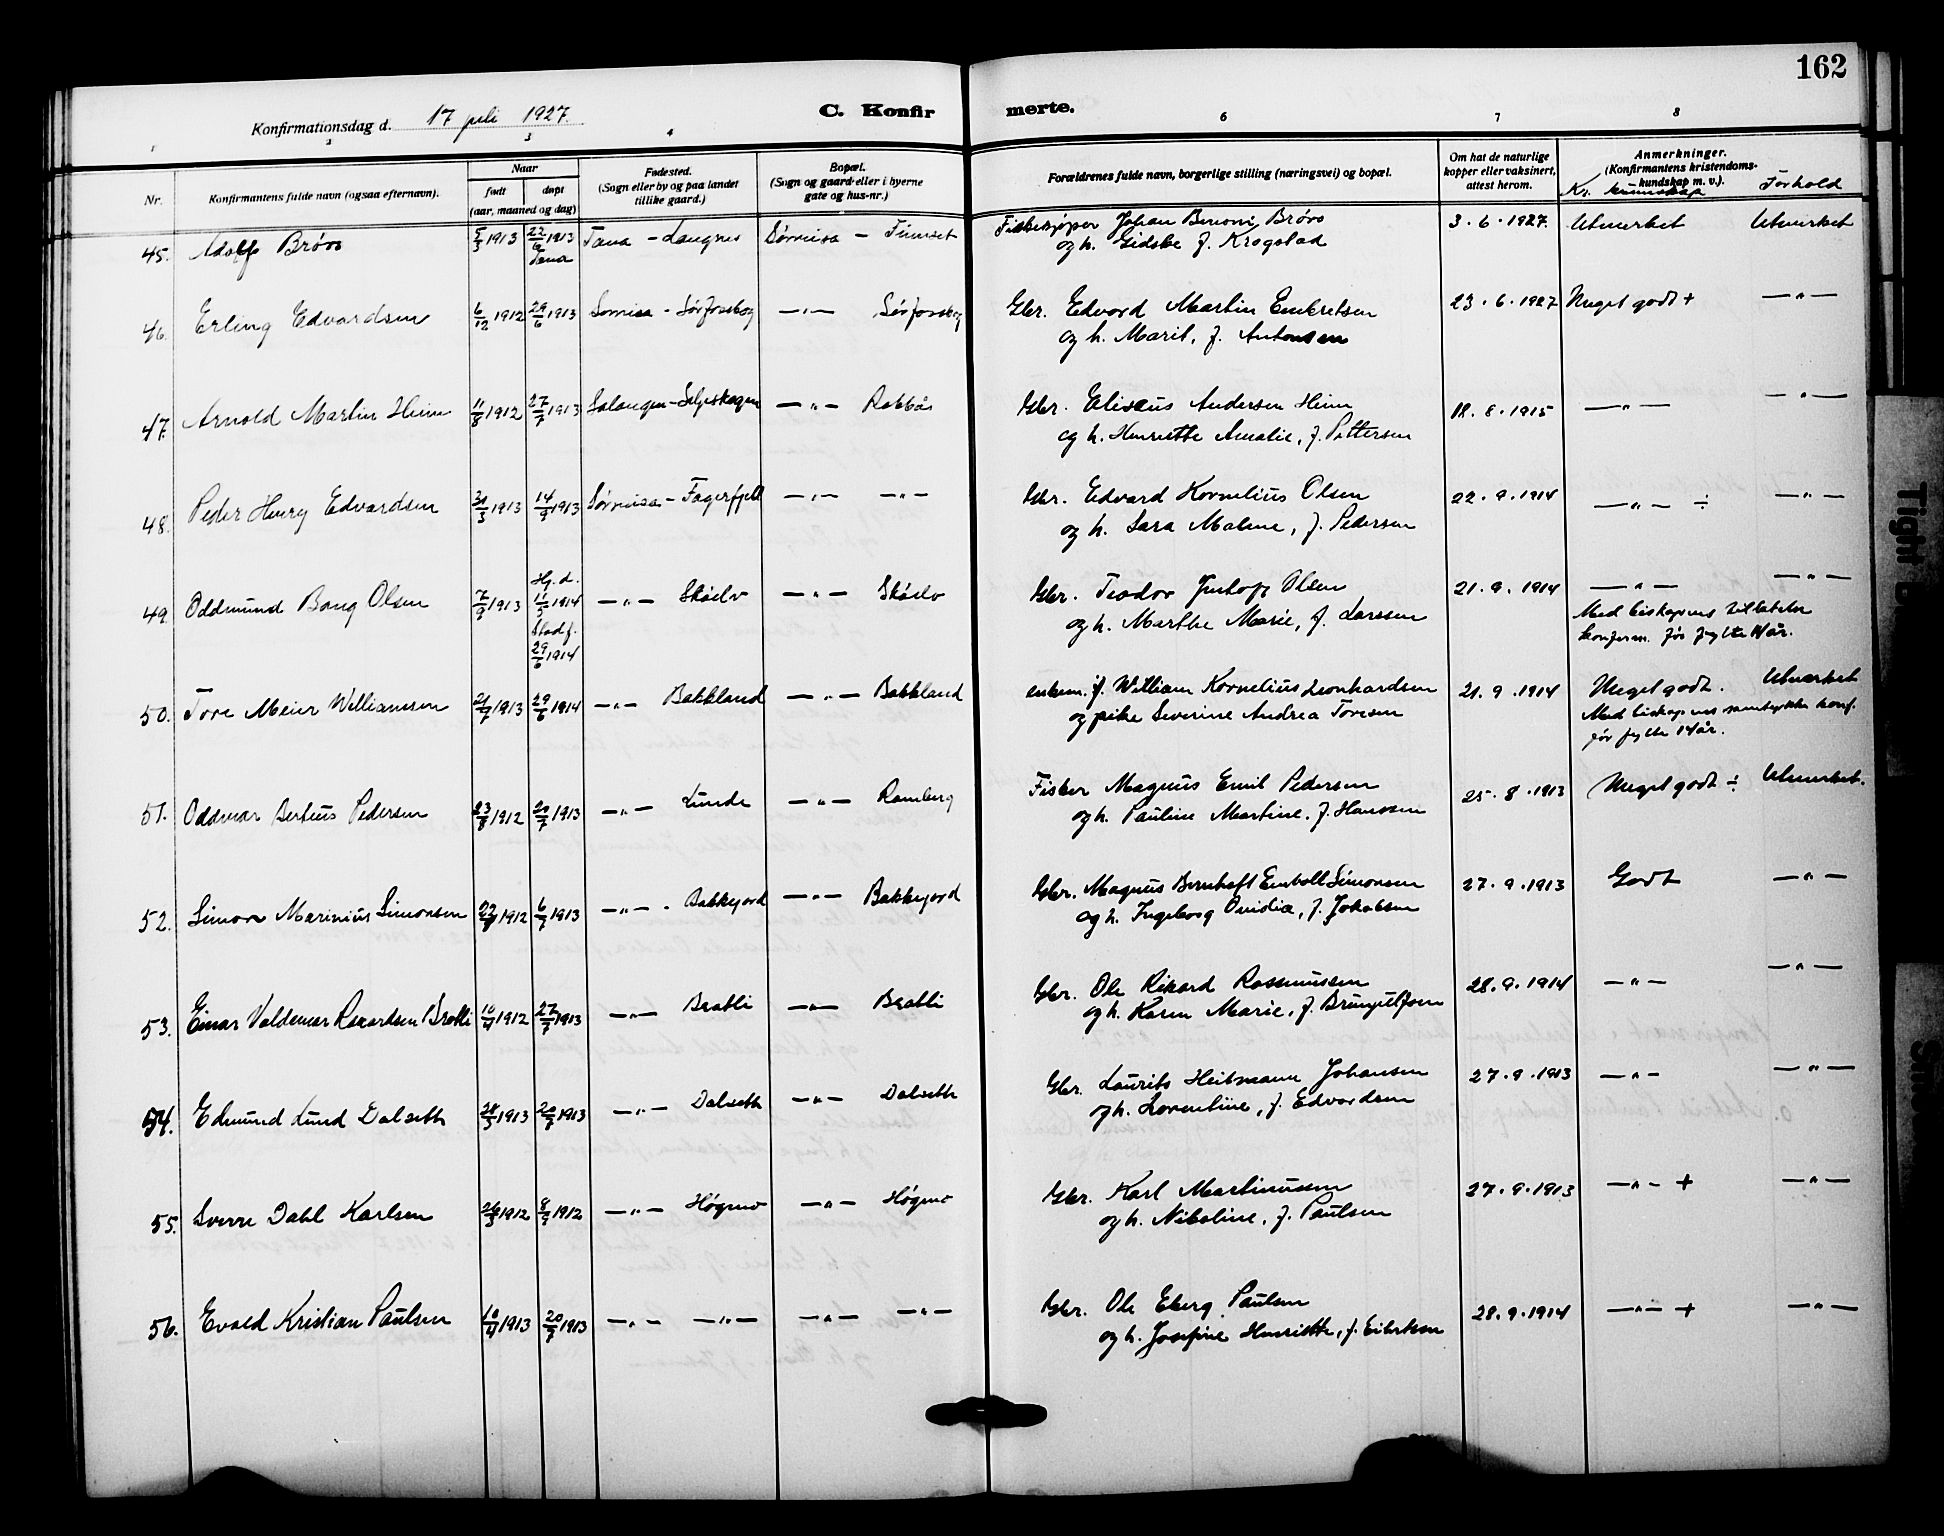 162
Konfirmationsdag d. 17 juli 1927.
C. Konfir merte.
1 2 3 4 6 7 8
Nr.
Konfirmantens fulde navn (ogsaa efternavn).
Naar
født
døpt
(aar, maaned og dag)
Fødested.
(Sogn eller by og paa landet
tillike gaard.)
Bopæl.
(Sogn og gaard eller i byerne
gate og hus-nr.)
Forældrenes fulde navn, borgerlige stilling (næringsvei) og bopæl.
Om hat de naturlige
kopper eller vaksinert,
attest herom.
Anmerkninger.
(Konfirmantens kristendoms-
kundskap m. v.).
Kr. kunnskap Forhold
45. Adolf Brørs 5/3 1913 22/6 1913 Tana - Langnes Sørreisa - Finnset Fiskekjøper Johan Benoni Brørs 3.6.1927. Utmerket Utmerket
Tana og h. Gidske f. Krogstad
46. Erling Edvardsen 6/12 1912 29/6 1913 Sørreisa - Sørfossbog —"— Sørfossbog Gbr. Edvard Martin Enkretsen 23.6.1927 Meget godt + —"—
og h. Marit, f. Antonsen
47. Arnold Martin Heim 11/8 1912 27/7 1913 Salangen - Seljeskogen —"— Rabbås Gbr. Eliseus Andersen Heim 12.8.1915 —"— —"—
og h. Henriette Amalie, f. Pettersen
48. Peder Henry Edvardsen 31/3 1913 14/9 1913 Sørreisa - Fagerfjell —"— —"— Gbr. Edvard Kornelius Olsen 22.9.1914 —"— ÷ —"—
og h. Sara Malene, f. Pedersen
49. Oddmund Bang Olsen 7/9 1913 Hj. d. 11/5 1914 —"— Skøelv —"— Skøelv Gbr. Teodor Olsen 21.9.1914 —"— —"—
Stadf. 29/6 1914 og h. Marthe Marie, f. Larssen Med biskopens tillatelse
konferm. før fylte 14 år.
50. Tore Meier Williamsen 21/7 1913 29/6 1914 —"— Bakkland —"— Bakkland enkem. f. William Kornelius Leonhardsen 21.9.1914 Meget godt. Utmerket
og pike Severine Andrea Toresen Med biskopens samtykke konf.
før fylte 14 år.
51. Oddmar Berteus Pedersen 23/8 1912 20/7 1913 —"— Lunde —"— Ramberg Fisker Magnus Emil Pedersen 25.8.1913 Meget godt ÷ Utmerket.
og h. Pauline Martine, f. Hanssen
52. Simon Marinius Simonsen 1912 6/7 1913 —"— Bakkejord —"— Bakkejord Gbr. Magnus Bernhoft Simonsen 27.9.1913 Godt —"—
og h. Ingeborg Ovidia, f. Jakobsen
53. Einar Valdemar Rikardsen Bratli 10/4 1912 27/7 1913 —"— Bratli —"— Bratli Gbr. Ole Rikard Rasmussen 28.9.1914 —"— —"—
og h. Karen Marie, f. Brynjulfsen
54. Edmund Lund Dalseth 28/3 1913 20/7 1913 —"— Dalseth —"— Dalseth Gbr. Laurits Heitmann Johansen 27.9.1913 —"— —"—
og h. Lorentine, f. Edvardsen
55. Sverre Dahl Karlsen 26/3 1912 8/9 1912 —"— Høgmo —"— Høgmo Gbr. Karl Martinussen 27.9.1913 —"— + —"—
og h. Nikoline, f. Paulsen
56. Evald Kristian Paulsen 10/4 1913 20/7 1913 —"— —"— —"— —"— Gbr. Ole Eberg Paulsen 28.9.1914 —"— + —"—
og h. Josefine Henriette, f. Eibertsen